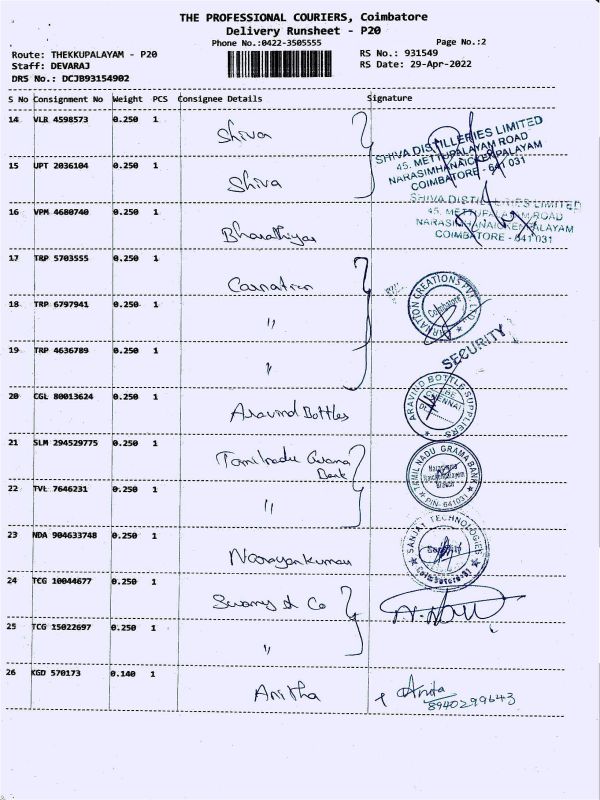 THE PROFESSIONAL COURIERS, Coimbatore
Delivery Runsheet - P20
Phone No.:0422-3505555
Page No.:2
Route: THEKKUPALAYAM - P20
RS No.: 931549
Staff: DEVARAJ
RS Date: 29-Apr-2022
DRS No.: DCJB93154902
S No Consignment No Weight PCS Consignee Details Signature
14 VLR 4598573 0.250 1 Shiva
SHIVA DISTILLERIES LIMITED
45, METTUPALAYAM ROAD
NARASIMHANAICKENPALAYAM
COIMBATORE - 641 031
15 UPT 2036104 0.250 1 Shiva
16 VPM 4680740 0.250 1 Bharathiyar
SHIVA DISTILLERIES LIMITED
45, METTUPALAYAM ROAD
NARASIMHANAICKENPALAYAM
COIMBATORE - 641 031
17 TRP 5703555 0.250 1 Carnation
18 TRP 6797941 0.250 1 "
CARNATION CREATIONS PVT. LTD.
Coimbatore
19 TRP 4636789 0.250 1 "
SECURITY
20 CGL 80013624 0.250 1 Aravind Bottles
ARAVIND BOTTLE SUPPLIERS
21 SLM 294529775 0.250 1 Tamilnadu Grama
Bank
TAMIL NADU GRAMA BANK
Branch
PIN-641031
22 TVL 7646231 0.250 1 "
23 NDA 904633748 0.250 1 Narayankumar
SANJAY TECHNOLOGIES
Security
Coimbatore-31
24 TCG 10044677 0.250 1 Swamy & Co
25 TCG 15022697 0.250 1 "
26 KGD 570173 0.140 1 Anitha
Anita
8940299643